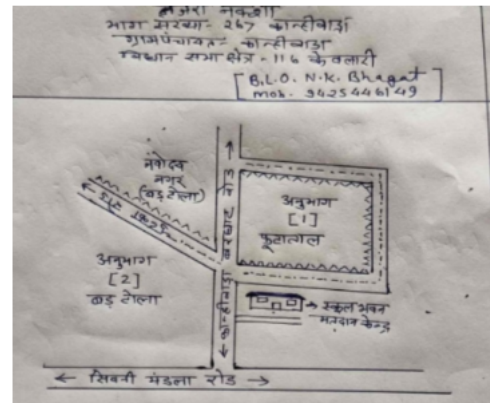 नजरी नक्शा
भाग संख्या- 267 कान्हीवाड़ा
ग्रामपंचायत- कान्हीवाड़ा
विधान सभा क्षेत्र - 116 केवलारी
[ B.L.O. N.K. Bhagat
mob. 9425446149 ]
नगर
(बड़ टोला)
अनुभाग
[1]
फूटाताल
कान्हीवाड़ा बरघाट रोड
अनुभाग
[2]
बड़ टोला
→ स्कूल भवन
मतदान केन्द्र
← सिवनी मंडला रोड →